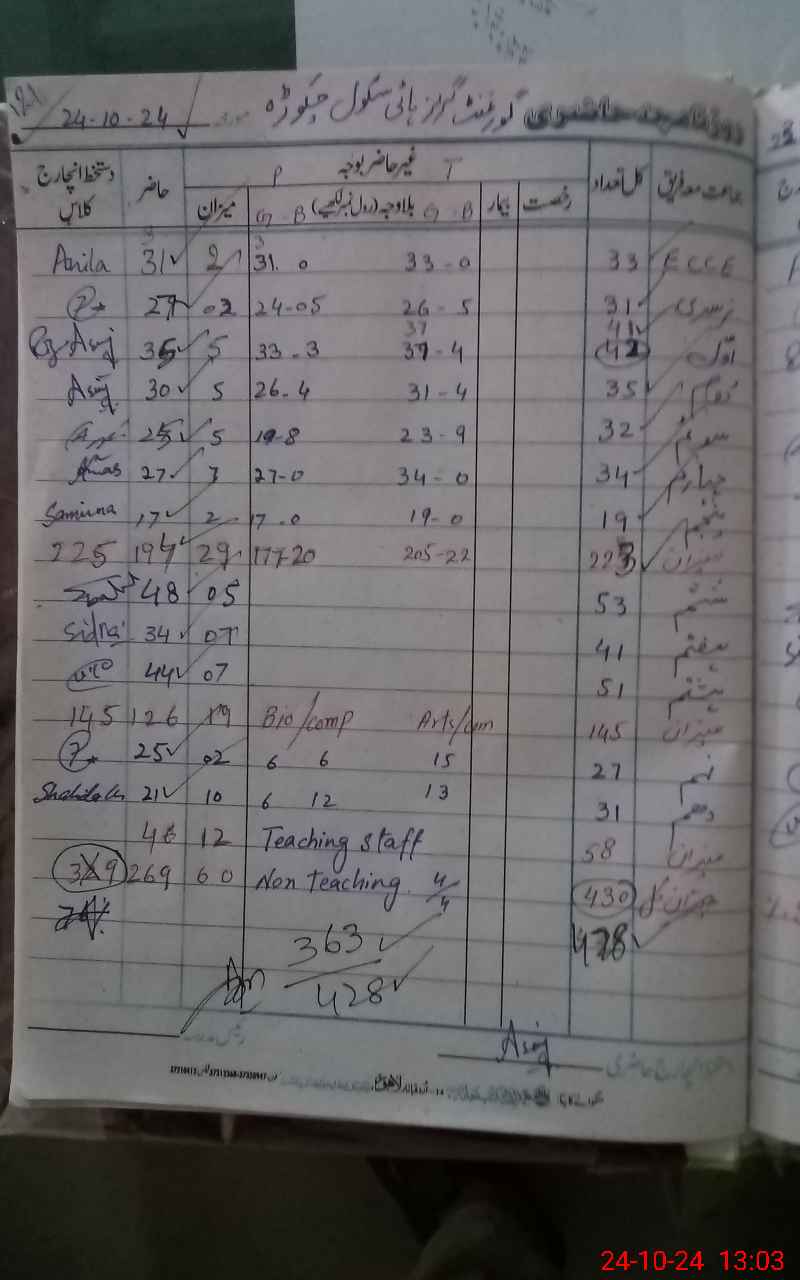 24-10-24 گورنمنٹ گرلز ہائی سکول چکوڑہ
جماعت کل تعداد رخصت بیمار غیر حاضر بوجہ حاضر دستخط انچارج کلاس
P T
میزان G B بلاوجہ (رول نمبر لکھیے) G B
Anila 31 2 31. 0 33-0 33 ECCE
27 02 24-05 26-5 31 نرسری
35 5 33-3 37-4 41 اوّل
30 5 26-4 31-4 35 دوئم
25 5 19-8 23-9 32 سوئم
27 7 27-0 34-0 34 چہارم
Samina 17 2 17-0 19-0 19 پنجم
225 194 29 177-20 205-22 223 میزان
48 05 53 ششم
Sidra 34 07 41 ہفتم
44 07 51 ہشتم
145 126 19 Bio/comp Arts/ 145 میزان
25 02 6 6 15 27 نہم
Shahida 21 10 6 12 13 31 دھم
46 12 Teaching staff 58 میزان
269 60 Non Teaching 4/4 430 میزان کل
363 478
428
Asij
رئیس مدرسہ
24-10-24 13:03